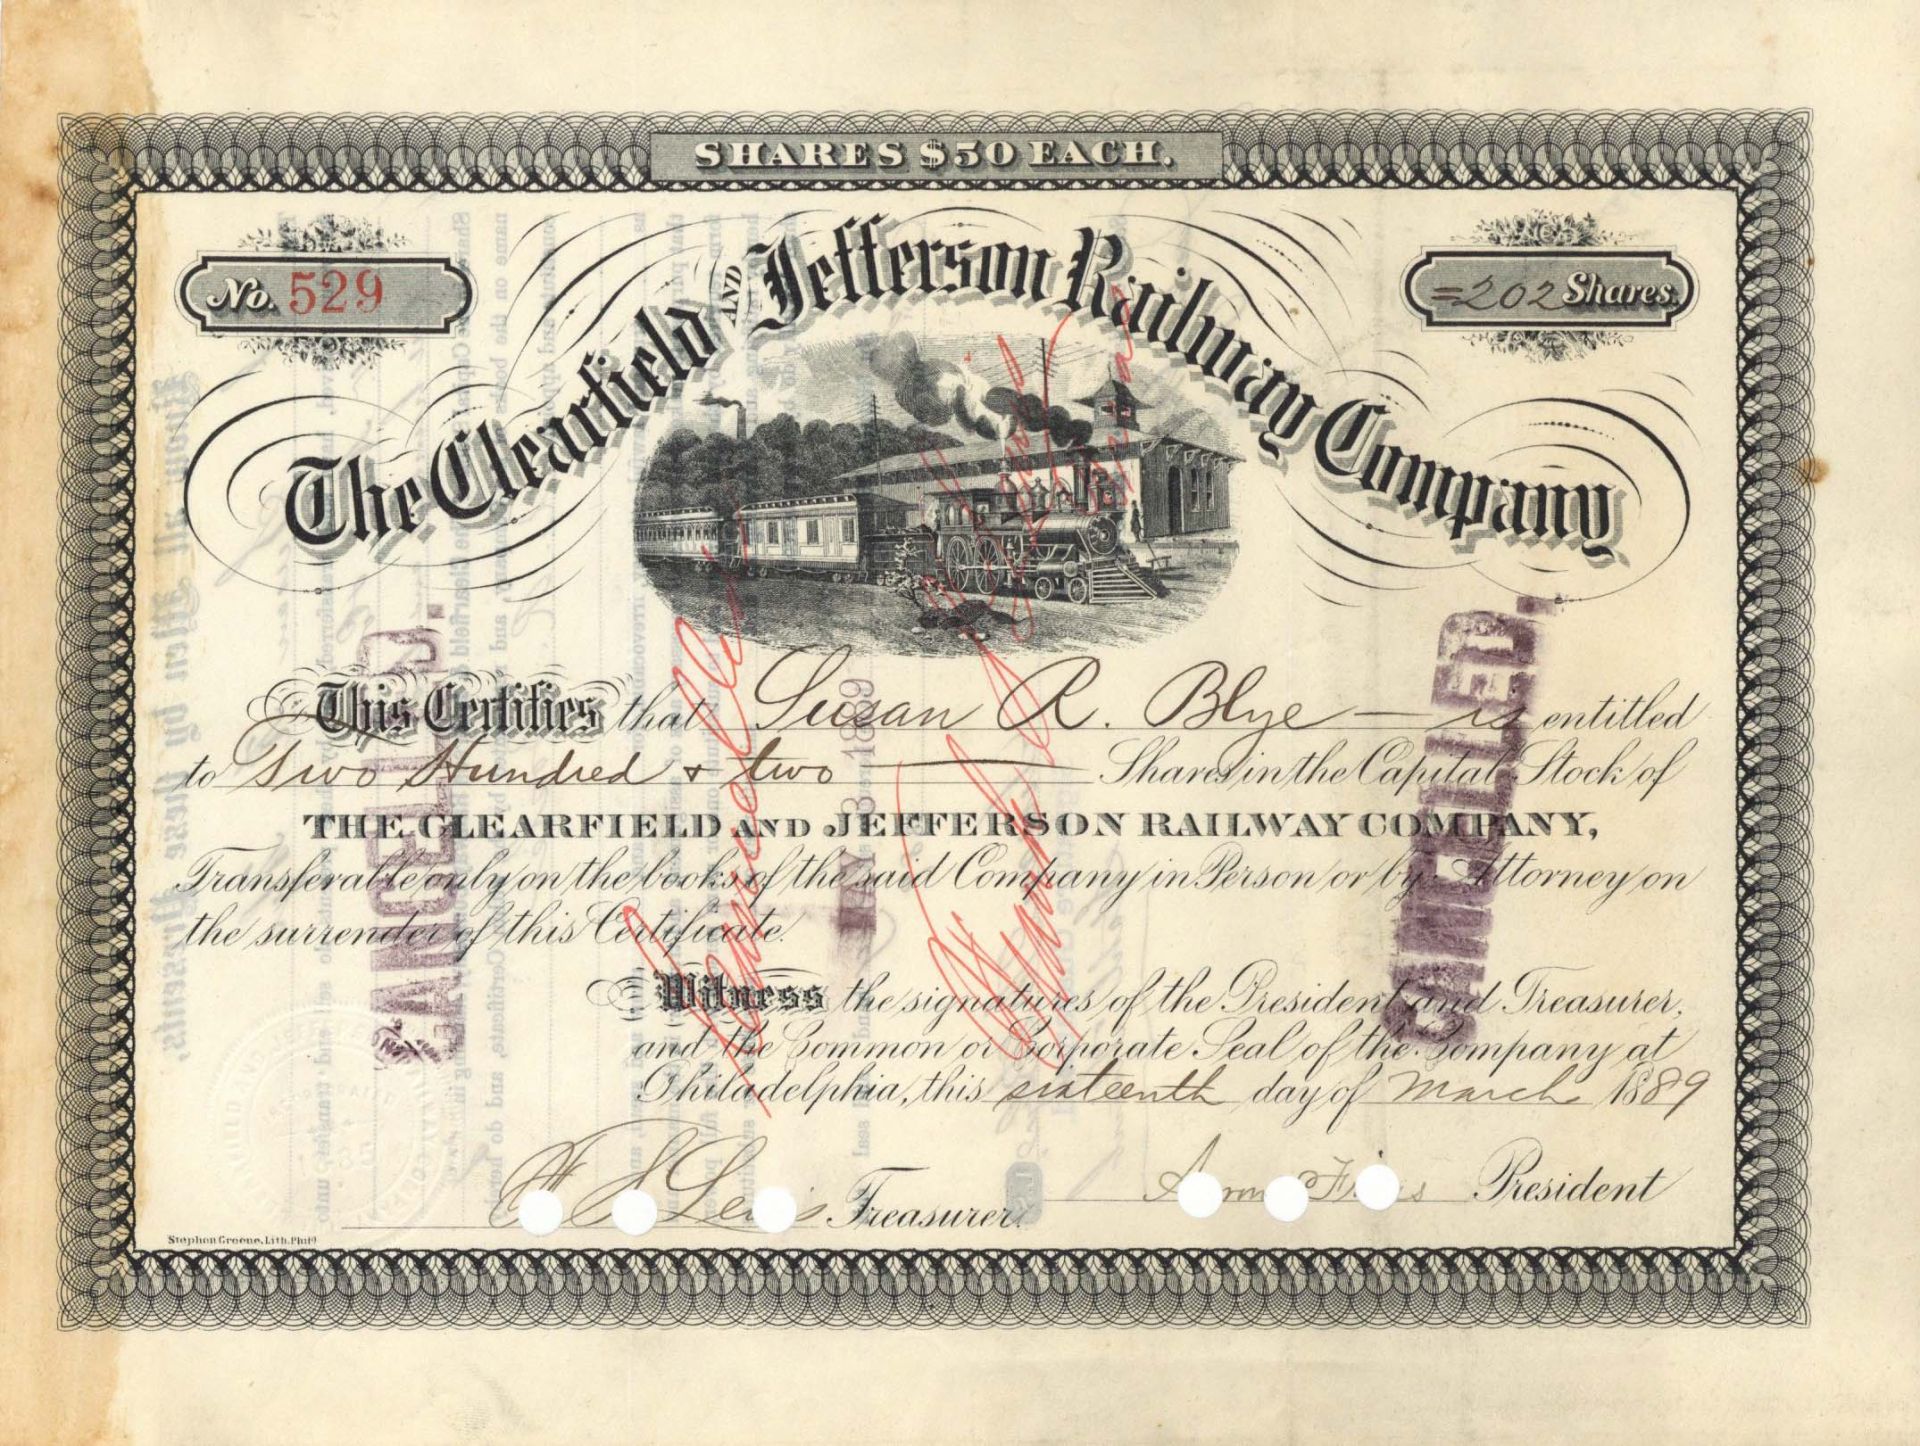 SHARES $50 EACH.
No. 529
=202 Shares.
The Clearfield AND Jefferson Railway Company
This Certifies that Susan R. Blye — is entitled
to Two Hundred & two — Shares in the Capital Stock of
THE CLEARFIELD AND JEFFERSON RAILWAY COMPANY,
Transferable only on the books of the said Company in Person or by Attorney on
the surrender of this Certificate.
Witness the signatures of the President and Treasurer,
and the Common or Corporate Seal of the Company at
Philadelphia, this sixteenth day of March 1889
Lewis Treasurer.
President
Stephen Greene, Lith. Phil
CANCELLED.
CANCELLED.
Cancelled